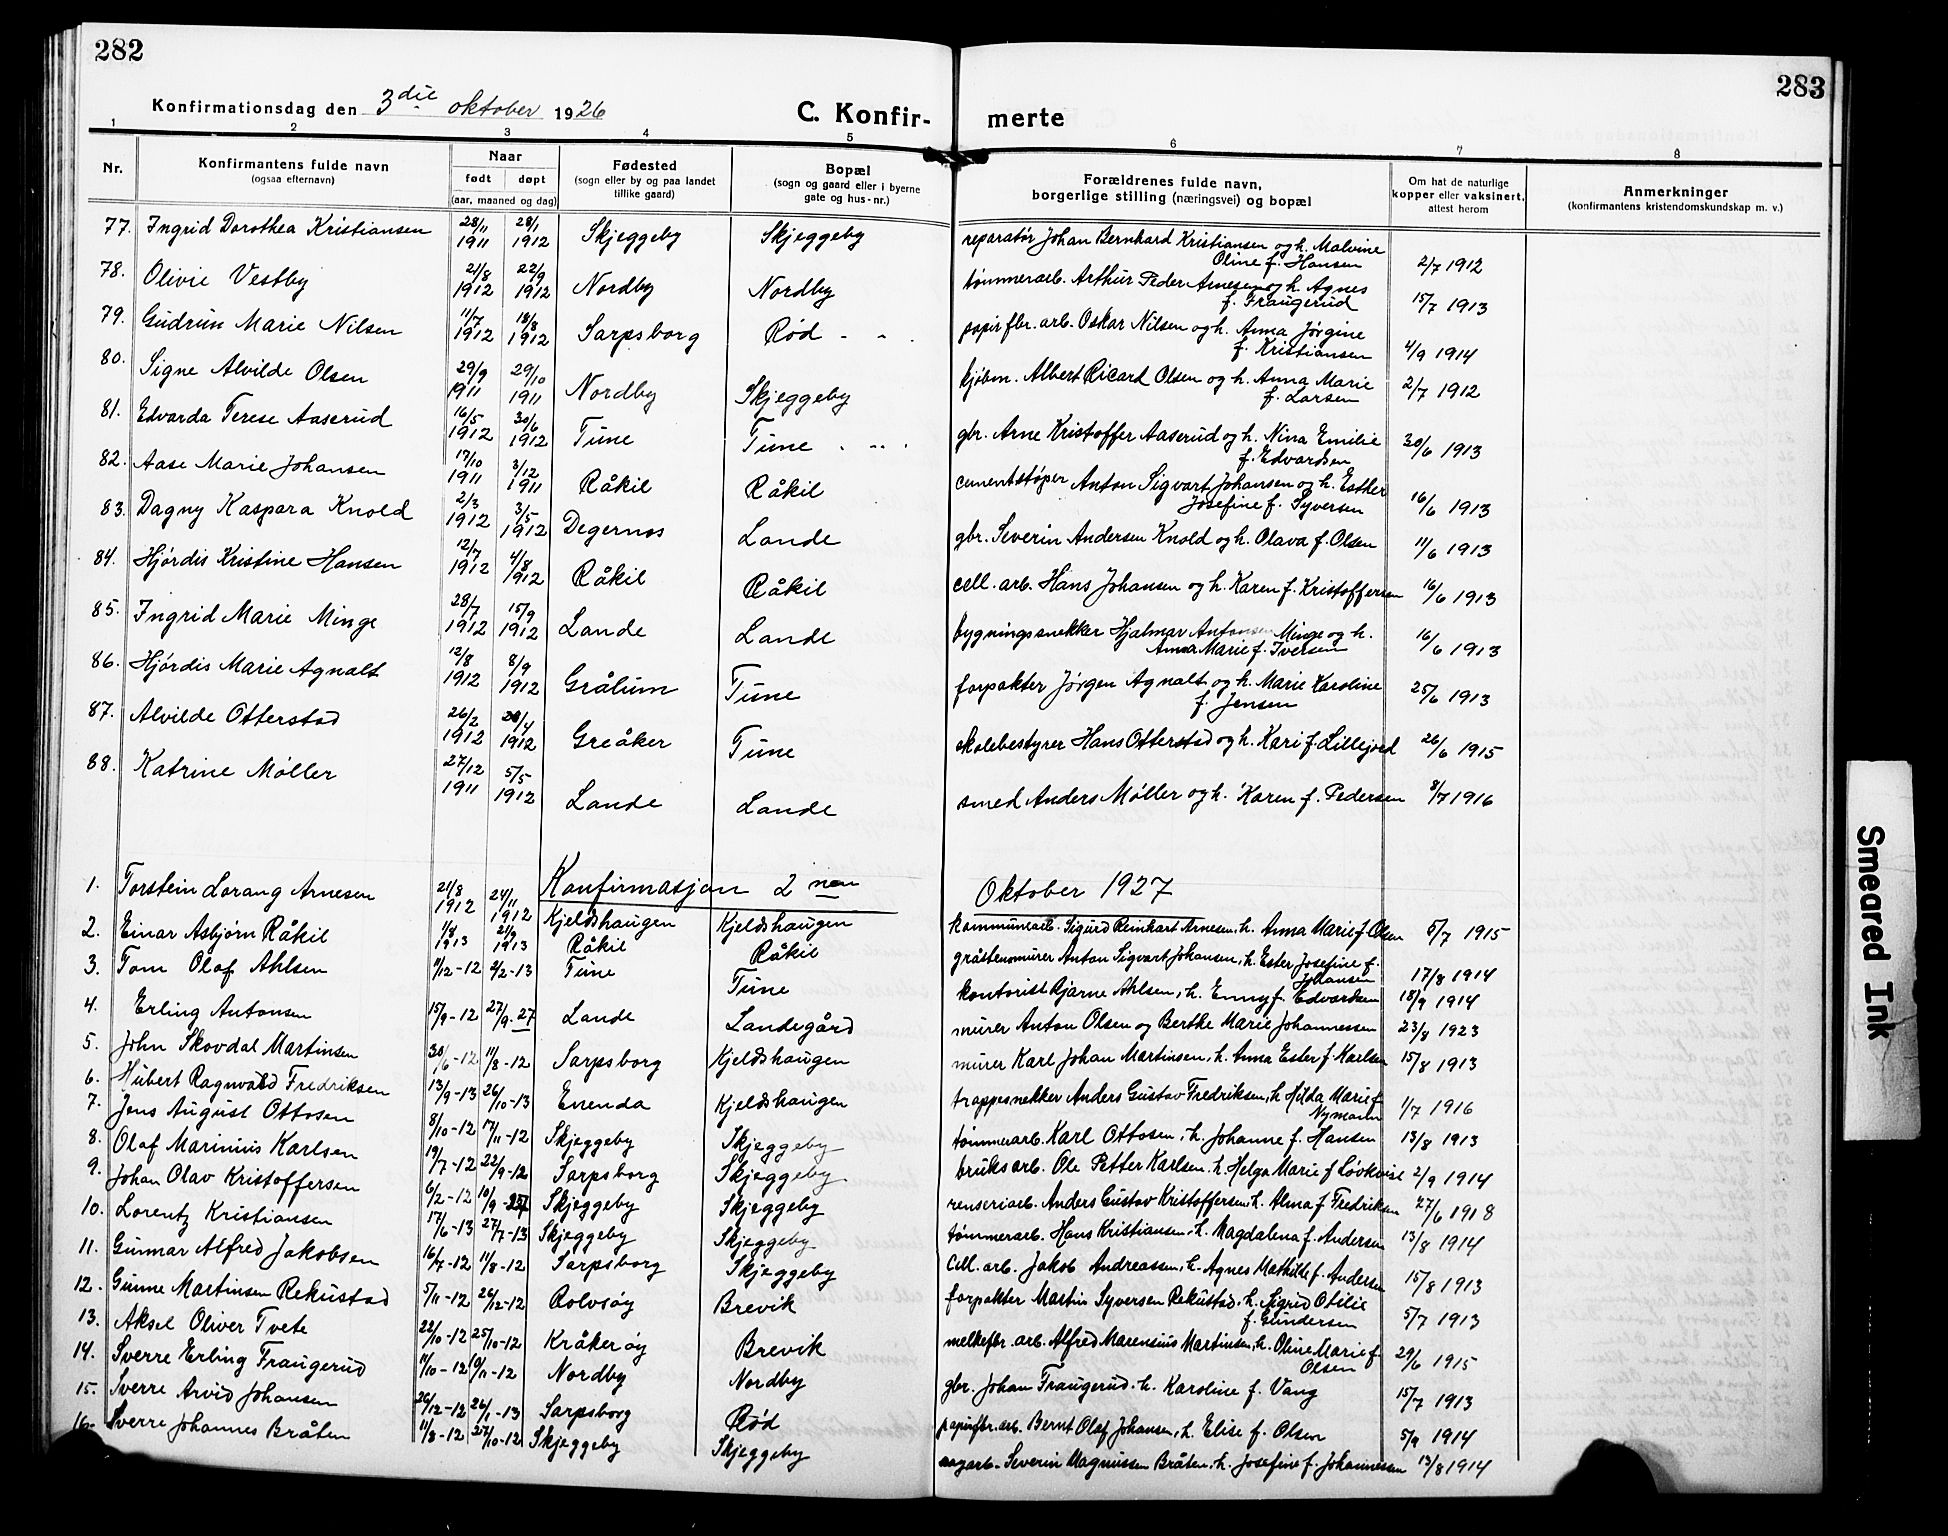 282
283
Konfirmationsdag den 3die oktober 1926
C. Konfir-merte
1 2 3 4 5 6 7 8
Nr.
Konfirmantens fulde navn
(ogsaa efternavn)
Naar
født døpt
(aar, maaned og dag)
Fødested
(sogn eller by og paa landet
tillike gaard)
Bopæl
(sogn og gaard eller i byerne
gate og hus-nr.)
Forældrenes fulde navn,
borgerlige stilling (næringsvei) og bopæl
Om hat de naturlige
kopper eller vaksinert,
attest herom
Anmerkninger
(konfirmantens kristendomskundskap m. v.)
77. Ingrid Dorothea Kristiansen 28/11 1911 28/1 1912 Skjeggeby Skjeggeby reparatør Johan Bernhard Kristiansen og h. Malvine
Oline f. Hansen 2/7 1912
78. Olivie Vestby 21/8 1912 22/9 1912 Nordby Nordby tømmerarb. Arthur Peder Arnesen og h. Agnes
f. Fraugerud 15/7 1913
79. Gudrun Marie Nilsen 11/7 1912 18/8 1912 Sarpsborg Rød - " . papirfbr. arb. Oskar Nilsen og h. Anna Jørgine
f. Kristiansen 4/9 1914
80. Signe Alvilde Olsen 29/9 1911 29/10 1911 Nordby Skjeggeby kjøbm. Albert Ricard Olsen og h. Anna Marie
f. Larsen 2/7 1912
81. Edvarda Terese Aaserud 16/5 1912 30/6 1912 Tune Tune . -"- . gbr. Arne Kristoffer Aaserud og h. Nina Emilie
f. Edvardsen 30/6 1913
82. Aase Marie Johansen 17/10 1911 3/12 1911 Råkil Råkil cementstøper Anton Sigvart Johansen og h. Esther
Josefine f. Syversen 16/6 1913
83. Dagny Kaspara Knold 2/3 1912 3/5 1912 Degernes Lande gbr. Severin Andersen Knold og h. Olava f. Olsen 11/6 1913
84. Hjørdis Kristine Hansen 12/7 1912 4/8 1912 Råkil Råkil cell. arb. Hans Johansen og h. Karen f. Kristoffersen 16/6 1913
85. Ingrid Marie Minge 28/7 1912 15/9 1912 Lande Lande bygningssnekker Hjalmar Antonsen Minge og h.
Anna Marie f. Iversen 16/6 1913
86. Hjørdis Marie Agnalt 12/8 1912 8/9 1912 Grålum Tune forpakter Jørgen Agnalt og h. Marie Karoline
f. Jensen 25/6 1913
87. Alvilde Otterstad 26/2 1912 /4 1912 Greåker Tune skolebestyrer Hans Otterstad og h. Kari f. Lillejord 26/6 1915
88. Katrine Møller 27/12 1911 5/5 1912 Lande Lande smed Anders Møller og h. Karen f. Pedersen 8/7 1916
Konfirmasjon 2nen Oktober 1927
1. Torstein Lorang Arnesen 21/8 1912 24/11 1912 Kjeldshaugen Kjeldshaugen kommunearb. Sigurd Reinhart Arnesen, h. Anna Marie f. Olsen 5/7 1915
2. Einar Asbjørn Råkil 1/8 1913 21/9 1913 Råkil Råkil gråstensmurer Anton Sigvart Johansen, h. Ester Josefine f.
Johansen 17/8 1914
3. Tom Olaf Ahlsen 11/12-12 2/2-13 Tune Tune kontorist Bjarne Ahlsen, h. Enny f. Edvardsen 18/9 1914
4. Erling Antonsen 15/9-12 27/9-27 Lande Landegård murer Anton Olsen og Berthe Marie Johannessen 23/8 1923
5. John Skovdal Martinsen 30/6-12 11/8-12 Sarpsborg Kjeldshaugen murer Karl Johan Martinsen, h. Anna Ester f. Karlsen 15/8 1913
6. Hubert Ragnvald Fredriksen 13/9-13 26/10-13 Enenda Kjeldshaugen trappesnekker Anders Gustav Fredriksen, h Hilda Marie f
Nymann 1/7 1916
7. Jens August Ottosen 8/10-12 17/11-12 Skjeggeby Skjeggeby tømmerarb. Karl Ottosen, h. Johanne f. Hansen 13/8 1913
8. Olaf Marinius Karlsen 19/7-12 22/9-12 Sarpsborg Skjeggeby bruksarb. Ole Petter Karlsen, h. Helga Marie f Løvkvist 2/9 1914
9. Johan Olav Kristoffersen 6/2-12 10/9-27 Skjeggeby Skjeggeby renseriarb. Anders Gustav Kristoffersen, h. Alma f Fredriksen 27/6 1918
10. Lorentz Kristiansen 17/6-13 27/7-13 Skjeggeby Skjeggeby tømmerarb. Hans Kristiansen, h. Magdalena f. Andersen 13/8 1914
11. Gunnar Alfred Jakobsen 16/7-12 11/8-12 Sarpsborg Skjeggeby Cell. arb. Jakob Andreassen, h. Agnes Mathilde f. Andersen 15/8 1913
12. Gunne Martinsen Rekustad 5/11-12 26/12-12 Rolvsøy Brevik forpakter Martin Syversen Rekustad, h. Sigrid Otilie
f. Gundersen 5/7 1913
13. Aksel Oliver Tvete 22/10-12 25/10-12 Kråkerøy Brevik melkefbr. arb. Alfred Marensius Martinsen, h. Oline Marie f.
Olsen 29/6 1915
14. Sverre Erling Fraugerud 11/10-12 10/11-12 Nordby Nordby gbr. Johan Fraugerud, h. Karoline f. Vang 15/7 1913
15. Sverre Arvid Johansen 26/12-12 26/1-13 Sarpsborg Rød papirfbr. arb. Bernt Olaf Johansen, h. Elise f. Olsen 5/9 1914
16. Sverre Johannes Bråten 11/8-12 27/10-12 Skjeggeby Skjeggeby sagarb. Severin Magnussen Bråten, h. Josefine f. Johannessen 13/8 1914
Smeared Ink